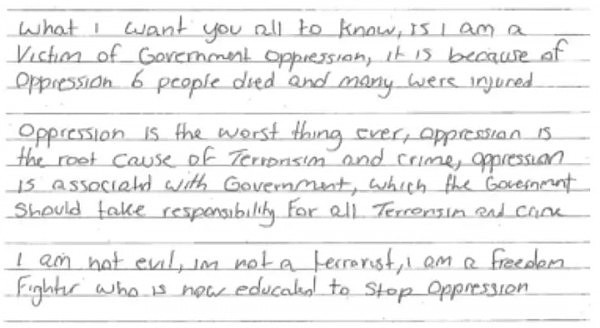 What I want you all to know, is I am a
Victim of Government oppression, it is because of
Oppression 6 people died and many were injured
Oppression is the worst thing ever, oppression is
the root cause of Terrorism and crime, oppression
is associated with Government, which the Government
should take responsibility for all Terrorism and crime
I am not evil, im not a terrorist, i am a freedom
Fighter who is now educated to stop oppression